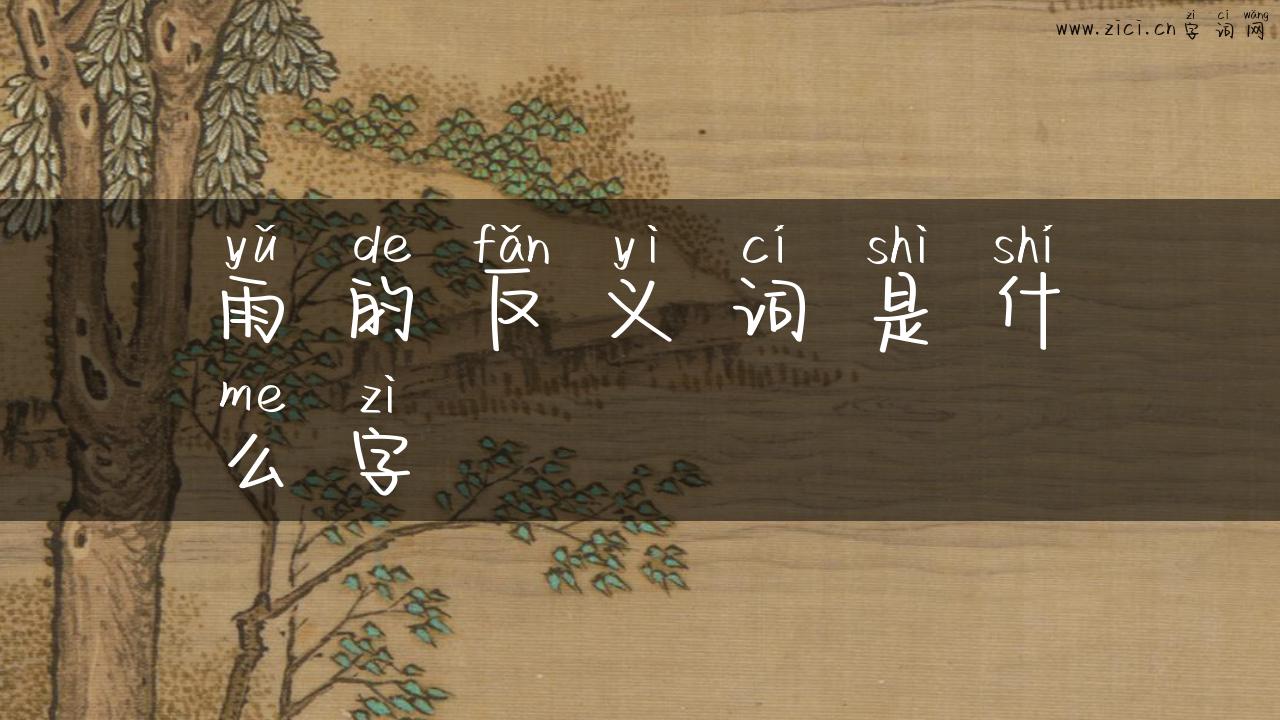 zì cí wǎng
www.zici.cn 字词网
yǔ de fǎn yì cí shì shí
雨的反义词是什
me zì
么字